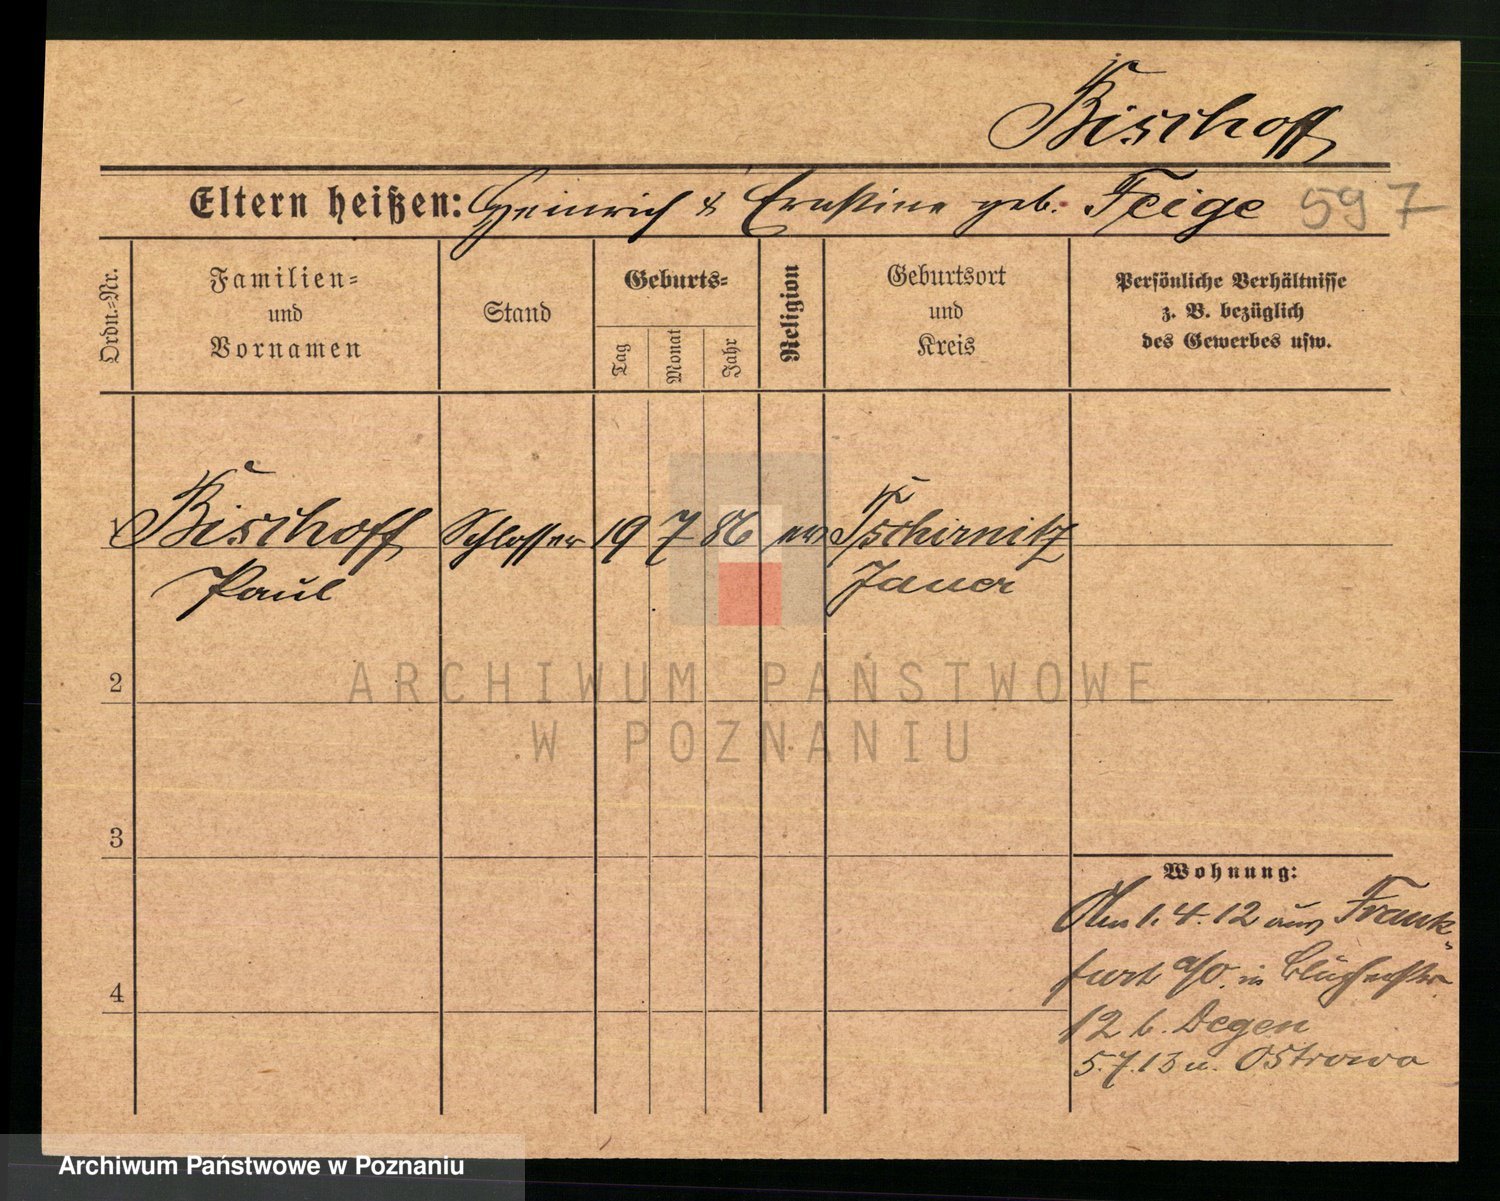 Bischoff
Eltern heißen: Heinrich & Ernstine geb. Feige 597
Ordn.-Nr.
Familien-
und
Vornamen
Stand
Geburts-
Tag
Monat
Jahr
Religion
Geburtsort
und
Kreis
Persönliche Verhältnisse
z. B. bezüglich
des Gewerbes usw.
1 Bischoff Schlosser 19 7 86 ev Tschirnitz
Paul Jauer
2
3
4
Wohnung:
Am 1.4.12 aus Frank-
furt a/O. in
12 b. Degen
5.7.13 n. Ostrowo
ARCHIWUM PAŃSTWOWE
W POZNANIU
Archiwum Państwowe w Poznaniu